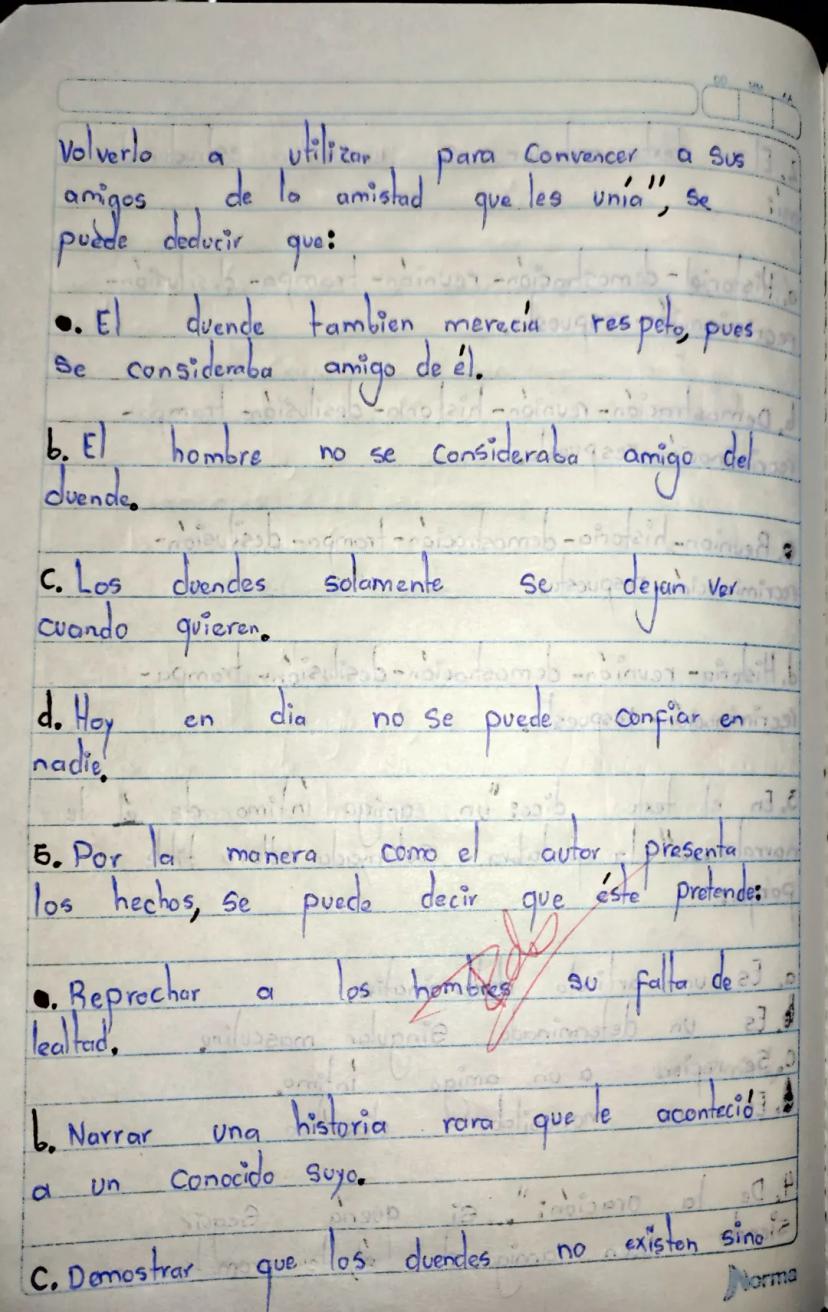 Volverlo a utilizar para Convencer a sus
amigos de la amistad que les unía", se
puede deducir que:
a. El duende tambien merecía respeto, pues
se consideraba amigo de él.
b. El hombre no se consideraba amigo del
duende.
C. Los duendes solamente se dejan ver
cuando quieren.
d. Hoy en dia no se puede confiar en
nadie.
5. Por la manera como el autor presenta
los hechos, se puede decir que éste pretende:
a. Reprochar a los hombres su falta de
lealtad.
b. Narrar una historia rara que le aconteció
a un conocido suyo.
C. Demostrar que los duendes no existen sino
Norma